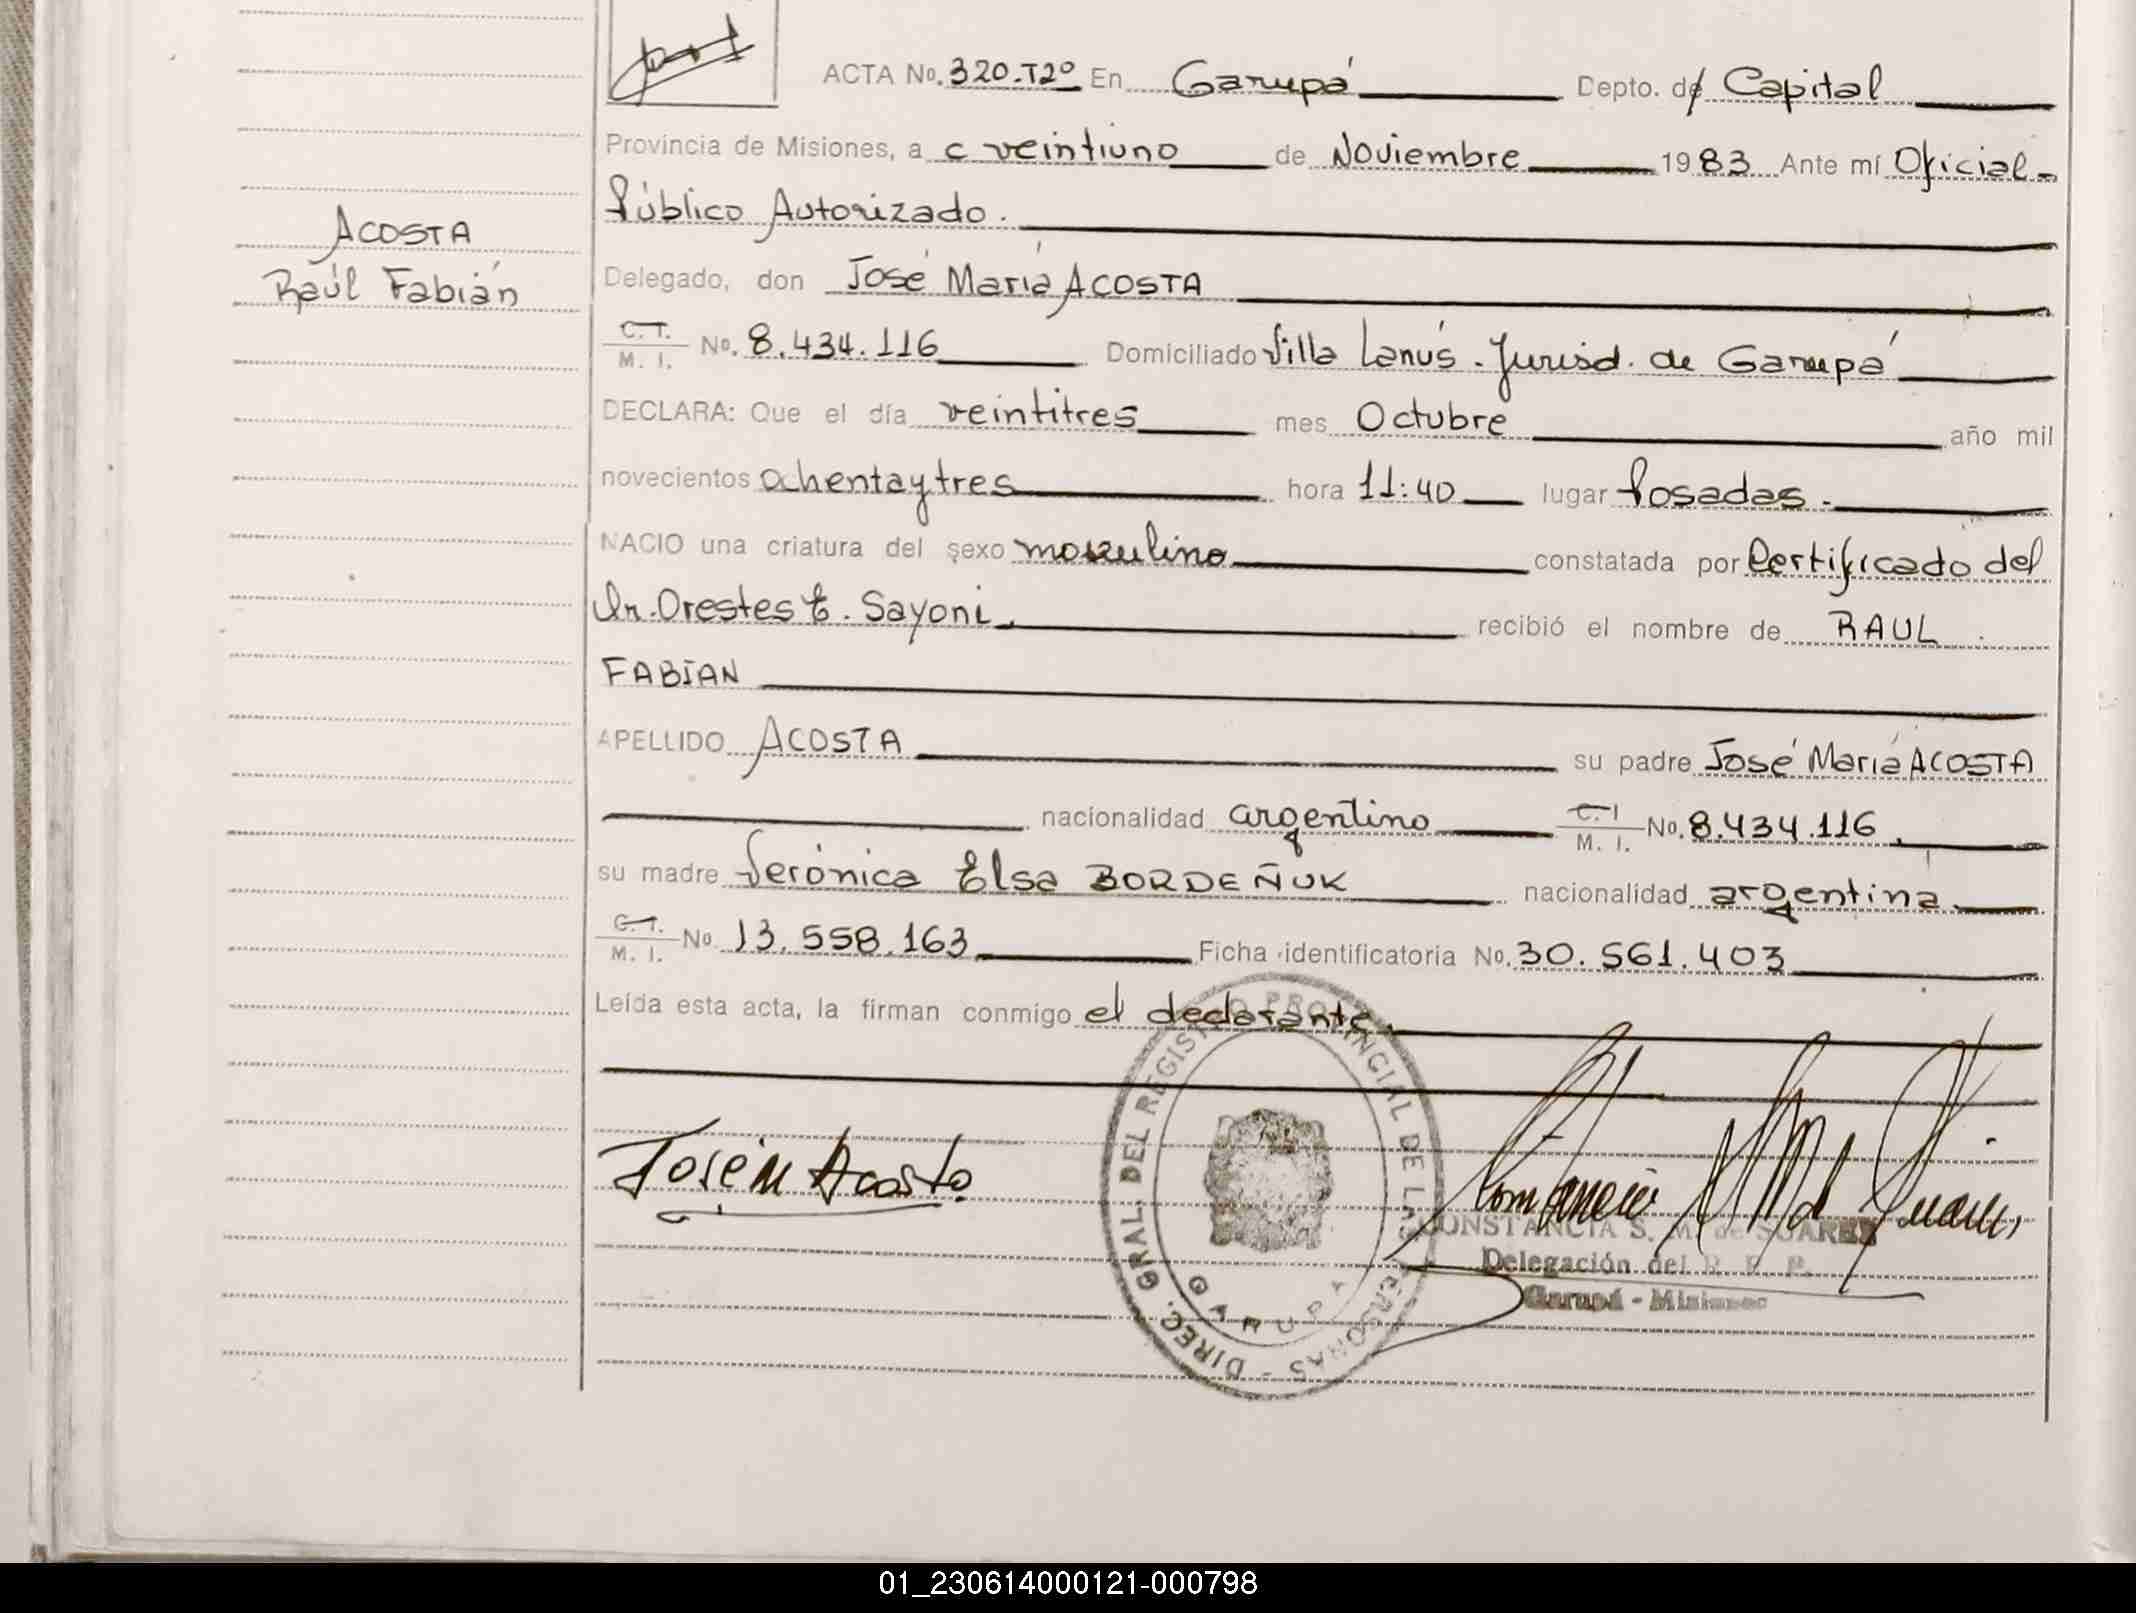 ACTA No. 320-T2º En Garupá Depto. de Capital
Provincia de Misiones, a veintiuno de Noviembre 1983 Ante mí Oficial
Público Autorizado.
ACOSTA
Raúl Fabián
Delegado, don José María ACOSTA
C. I. M. I. No. 8.434.116 Domiciliado Villa Lanús. Jurisd. de Garupá
DECLARA: Que el día veintitres mes Octubre año mil
novecientos ochentaytres hora 11:40 lugar Posadas.
NACIO una criatura del sexo masculino constatada por Certificado del
Dr. Orestes E. Sayoni, recibió el nombre de RAUL
FABIAN
APELLIDO ACOSTA su padre José María ACOSTA
nacionalidad argentino C. I. M. I. No. 8.434.116,
su madre Verónica Elsa BORDEÑUK nacionalidad argentina
C. I. M. I. No. 13.558.163 Ficha identificatoria No. 30.561.403
Leída esta acta, la firman conmigo el declarante.
José M Acosta
DIREC. GRAL. DEL REGISTRO PROVINCIAL DE LAS PERSONAS -
GARUPA
CONSTANCIA S. M. de SUAREZ
Delegación del R. P. P.
Garupá - Misiones
01_230614000121-000798